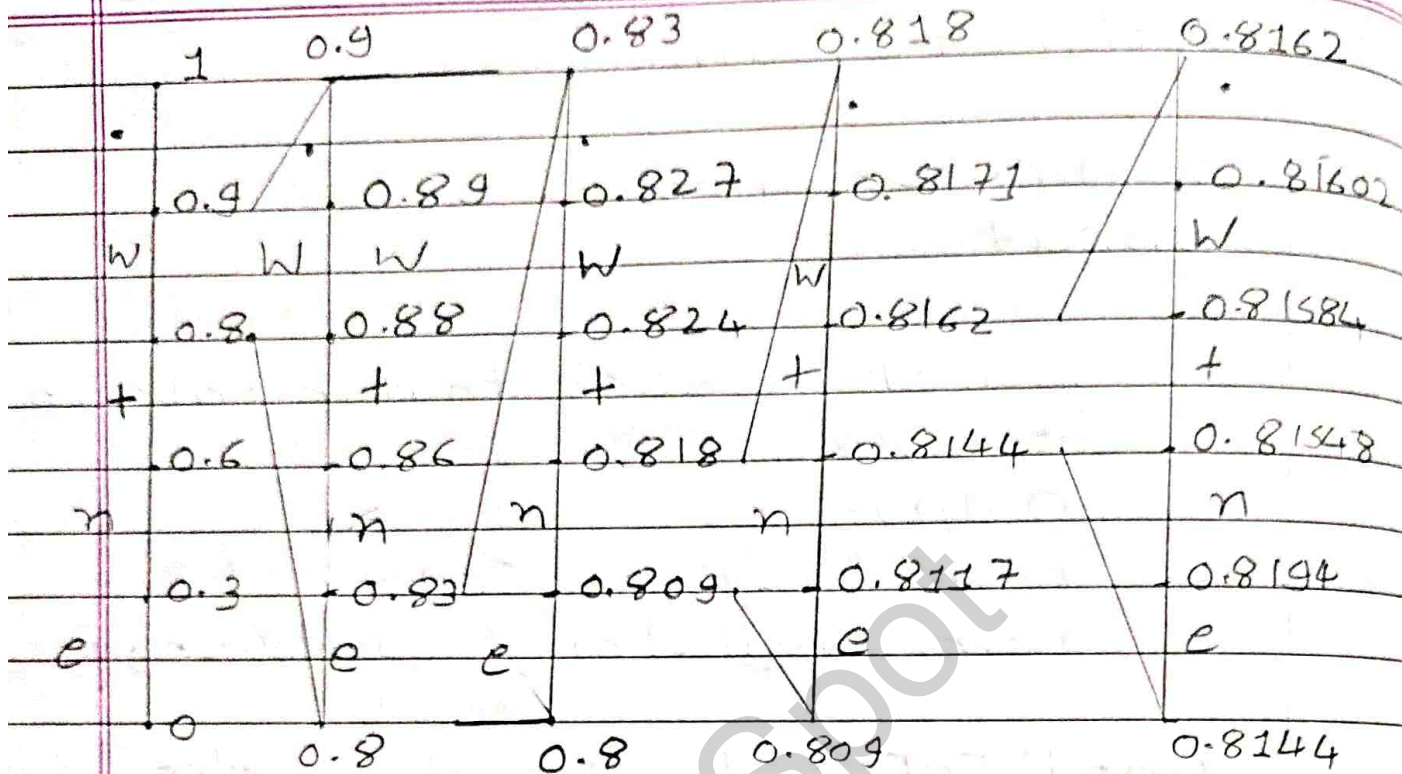 1 0.9 0.83 0.818 0.8162
. . . . .
0.9 0.89 0.827 0.8171 0.81602
W W W W W W
0.8 0.88 0.824 0.8162 0.81584
+ + + + +
0.6 0.86 0.818 0.8144 0.81548
n n n n n
0.3 0.83 0.809 0.8117 0.8194
e e e e e
0 0.8 0.8 0.809 0.8144
spot